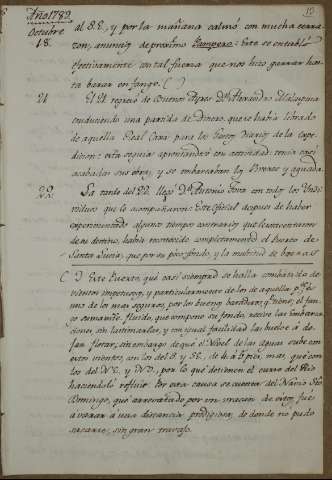 Año 1789
Octubre
18.
al S.E., y por la mañana calmó con mucha cerra-
zon, anuncio de proximo Pampero: Este se entabló
efectivamente con tal fuerza que nos hizo garrar has-
ta barar en fango. ( )
21
El 21 regresó de Buenos Ayres Dn. Alexandro Malaspina
conduciendo una partida de Dinero, que se havia librado
de aquella Real Caxa para los gastos Diarios de la Expe-
dicion: esta seguia aprontandose con actividad: tenia casi
acabadas sus obras, y se embarcaban los viveres y aguada.
La tarde del 22 llegó Dn. Antonio con todos los Yndi-
viduos que le acompañaron: Este Oficial despues de haber
experimentado algunos tiempos contrarios que le
de su destino, habia reconocido completamente el Puerto de
Santa Lucia, que por su poco fondo, y la multitud de bocas
( ) Este Puerto, que casi siempre se halla combatido de
vientos impetuosos, y particularmente de los de aquella pte. es
uno de los mas seguros, por los buenos baraderos q. tiene; el fan-
go sumamte. fluido, que compone su fondo, recive las embarca-
ciones, sin lastimarlas, y con igual facilidad las buelve á de-
jar flotar, sin embargo de que el Nivel de las aguas sube con
estos vientos, con los del S. y SE. de 4 á 6 pies, mas que con
los del NE. y NO., por lo que detienen el curso del Rio
haciendole refluir. Por esta causa se cuenta del Navio Sto.
Domingo, que arrebatado por un uracan de estos, fue
a varar a una distancia prodigiosa, de donde no pudo
sacarse, sin gran trabajo.